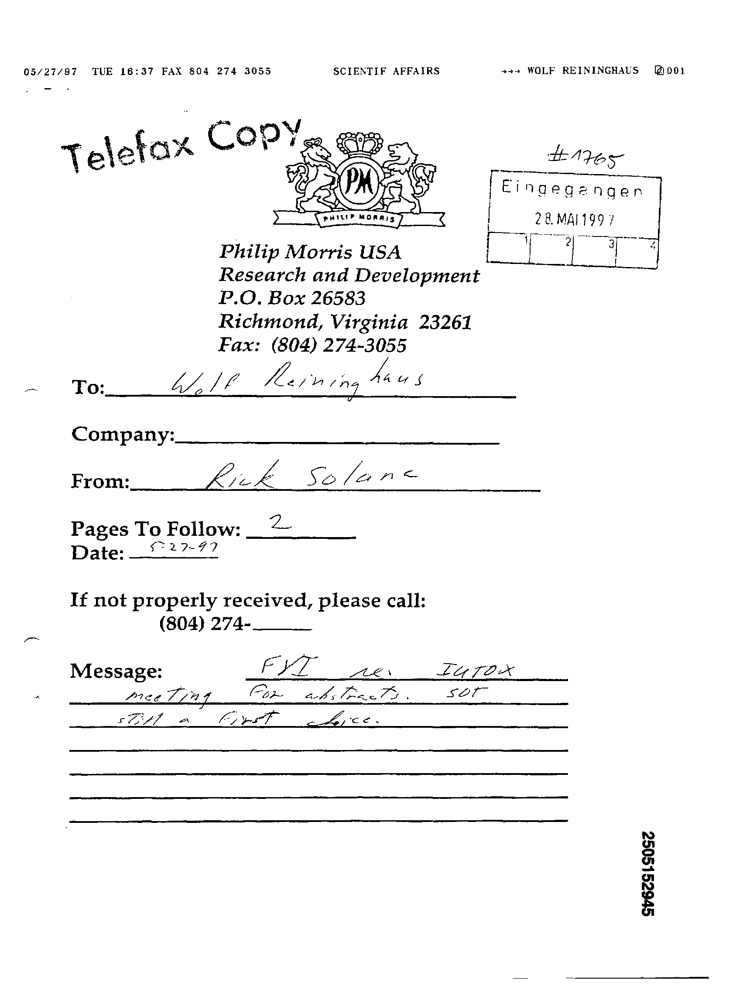 05/27/97 TUE 16:37 FAX 804 274 3055 SCIENTIF AFFAIRS →→→ WOLF REININGHAUS 001
Telefax Copy
#1765
PM
PHILIP MORRIS
Eingegangen
28. MAI 1997
1 2 3 4
Philip Morris USA
Research and Development
P.O. Box 26583
Richmond, Virginia 23261
Fax: (804) 274-3055
To: Wolf Reininghaus
Company:
From: Rick Solana
Pages To Follow: 2
Date: 5-27-97
If not properly received, please call:
(804) 274-
Message: FYI re. IUTOX
meeting For abstracts. SOT
still a First choice.
2505152945